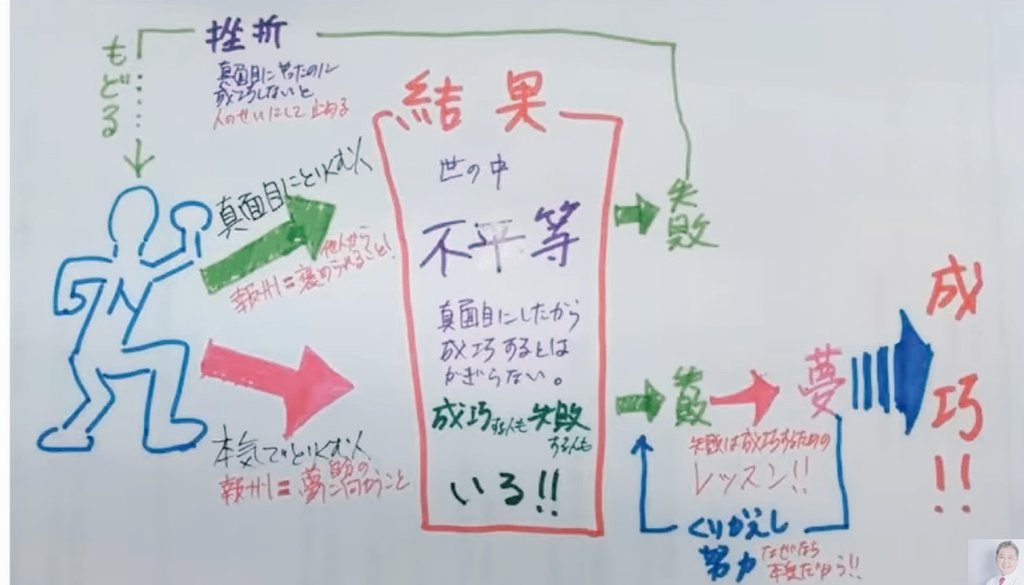 挫折
真面目にやったのに
成功しないと
人のせいにして止める
もどる
結果
世の中
不平等
真面目にしたから
成功するとは
かぎらない。
成功する人も失敗
する人も
いる!!
真面目にとりくむ人
報酬=他人から
褒められること!
本気でとりくむ人
報酬=自分の
夢に向かうこと
失敗
夢
失敗は成功するための
レッスン!!
くりかえし
努力
なぜなら
本気だから!!
成功!!